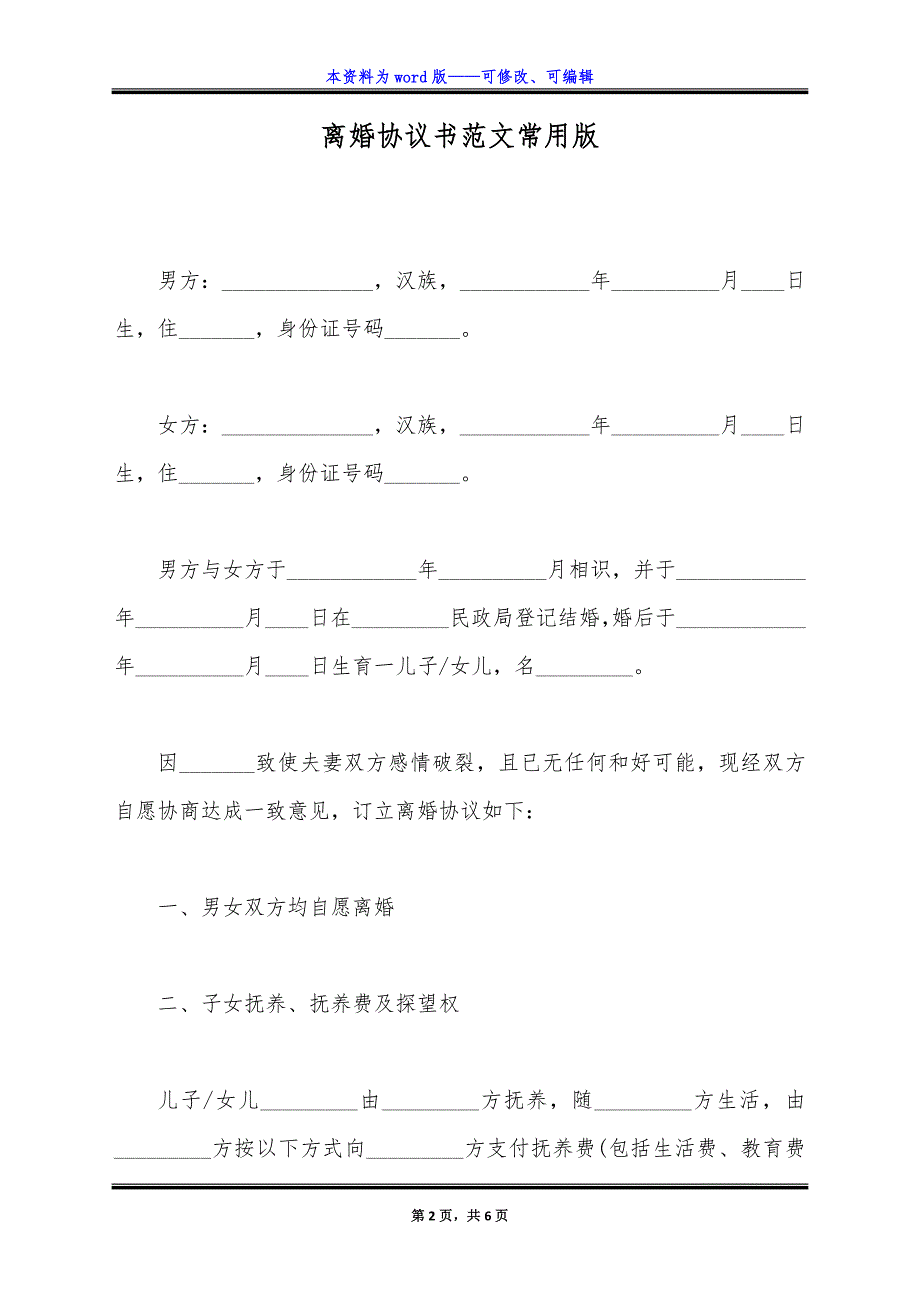 本资料为 word 版——可修改、可编辑
离婚协议书范文常用版
男方：______________，汉族，____________年__________月____日
生，住_______，身份证号码_______。
女方：______________，汉族，____________年__________月____日
生，住_______，身份证号码_______。
男方与女方于____________年__________月相识，并于____________
年__________月____日在_________民政局登记结婚,婚后于____________
年__________月____日生育一儿子/女儿，名_________。
因_______致使夫妻双方感情破裂，且已无任何和好可能，现经双方
自愿协商达成一致意见，订立离婚协议如下：
一、男女双方均自愿离婚
二、子女抚养、抚养费及探望权
儿子/女儿_________由_________方抚养，随_________方生活，由
_________方按以下方式向_________方支付抚养费(包括生活费、教育费
第 2 页，共 6 页